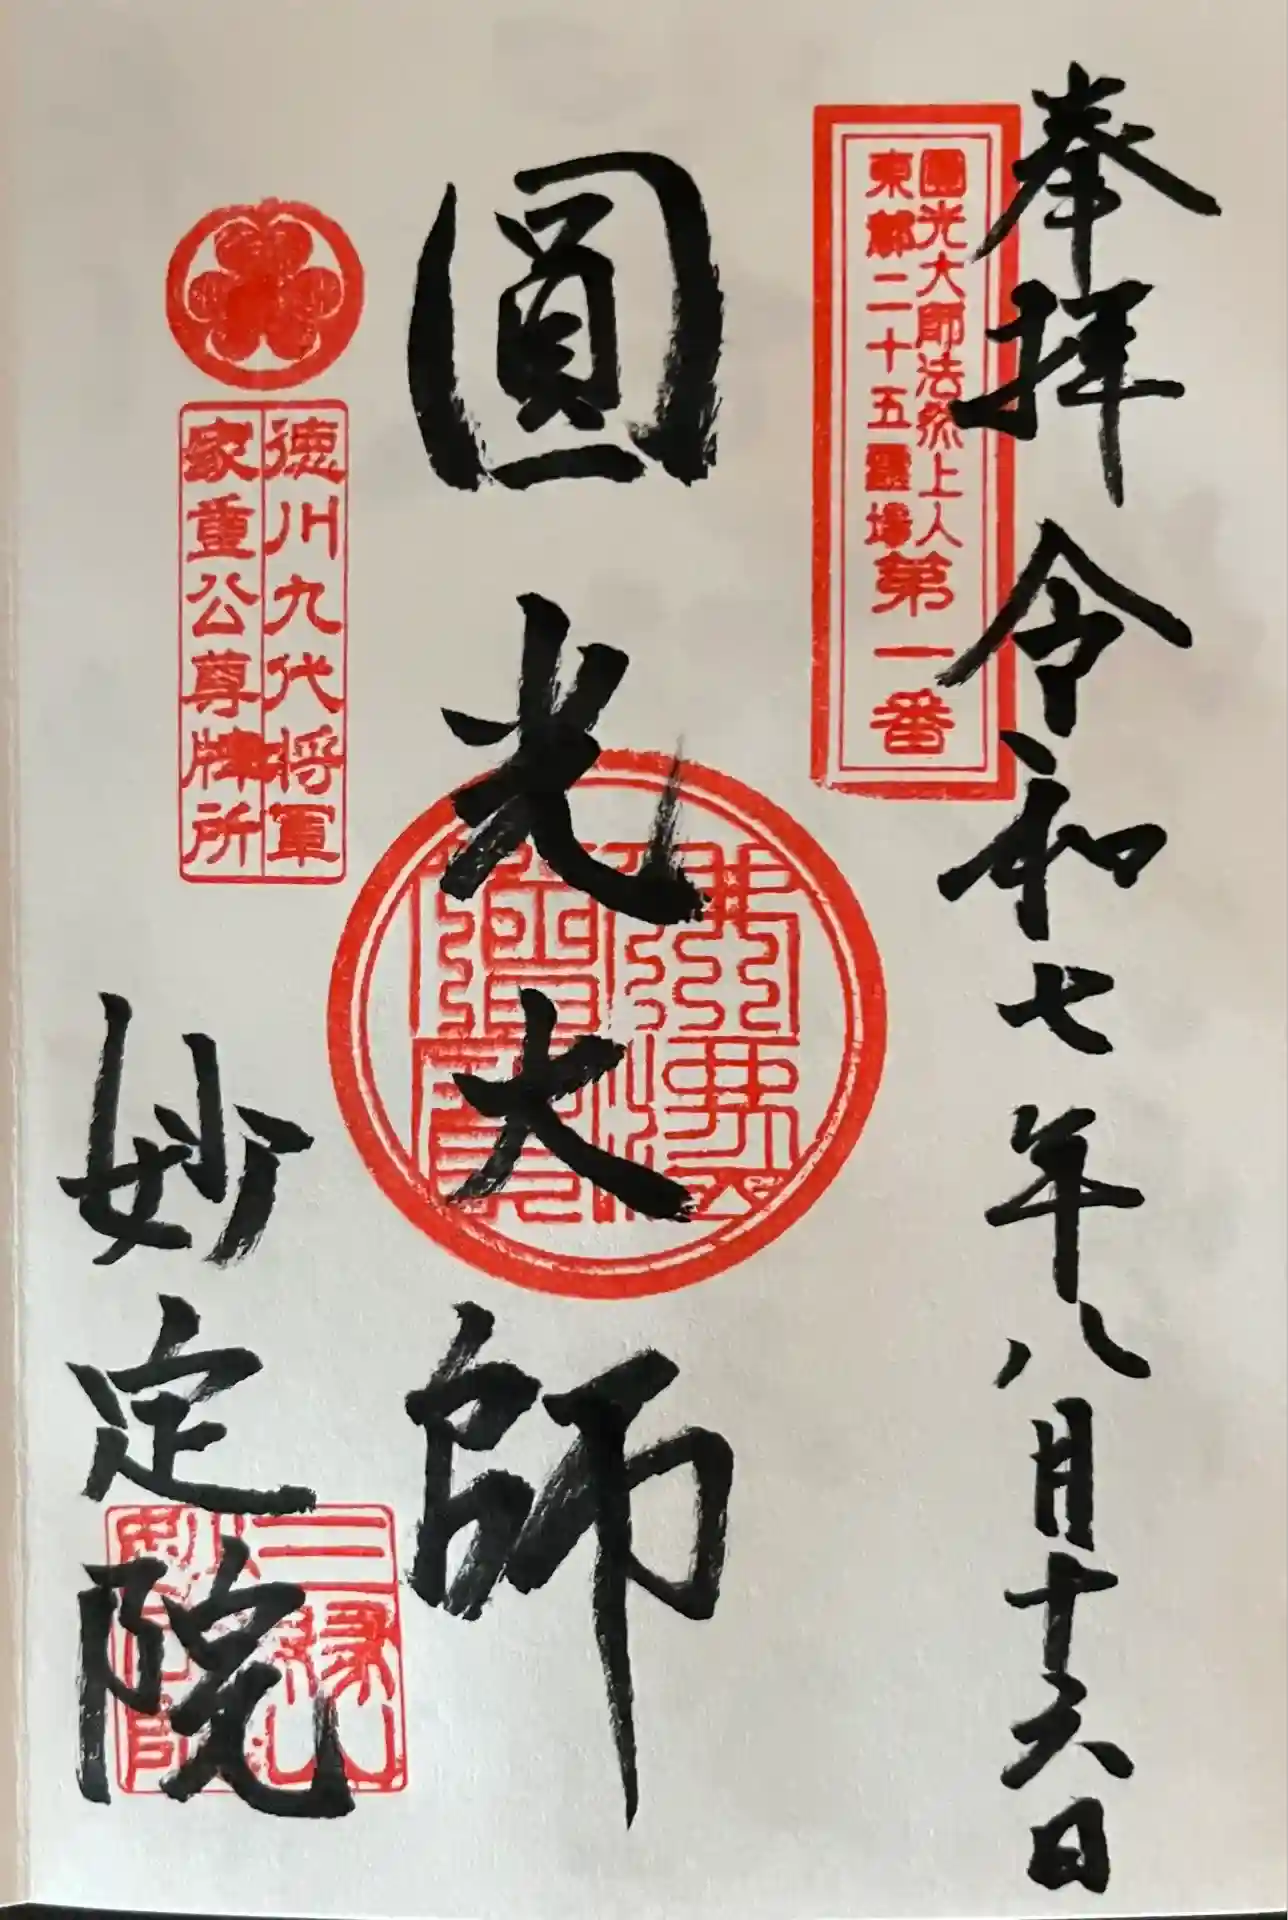 奉拝 令和七年八月十六日
圓光大師法然上人
東都二十五霊場
第一番
圓光大師
佛法僧寶
徳川九代将軍
家重公尊牌所
妙定院
三縁山